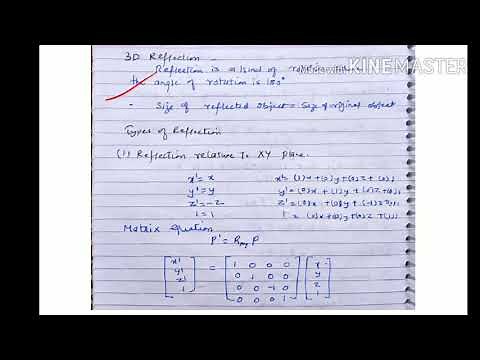 3D Reflection -
Reflection is a kind of rotation
the angle of rotation is 180°
KINEMASTER
- Size of reflected object = Size of original object
Types of Reflection
(1) Reflection relative To XY plane.
x' = x x' = (1)x+(0)y+(0)z+(0)1
y' = y y' = (0)x+(1)y+(0)z+(0)1
z' = -z z' = (0)x+(0)y+(-1)z+(0)1
1 = 1 1 = (0)x+(0)y+(0)z+(1)1
Matrix Equation
P' = Rxy P
[x' y' z' 1] = [1 0 0 0 [x
0 1 0 0 y
0 0 -1 0 z
0 0 0 1] 1]